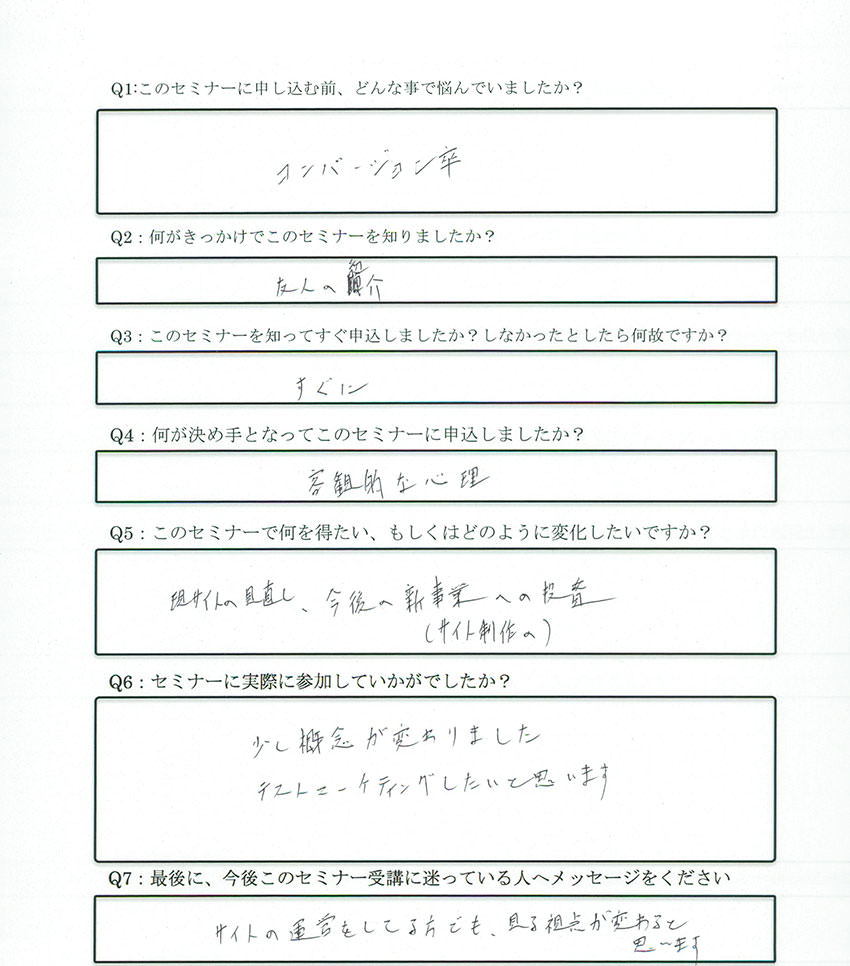 Q1:このセミナーに申し込む前、どんな事で悩んでいましたか？
コンバージョン率
Q2：何がきっかけでこのセミナーを知りましたか？
友人の紹介
Q3：このセミナーを知ってすぐ申込しましたか？しなかったとしたら何故ですか？
すぐに
Q4：何が決め手となってこのセミナーに申込しましたか？
客観的な心理
Q5：このセミナーで何を得たい、もしくはどのように変化したいですか？
現サイトの見直し、今後の新事業への投資
(サイト制作の)
Q6：セミナーに実際に参加していかがでしたか？
少し概念が変わりました
テストマーケティングしたいと思います
Q7：最後に、今後このセミナー受講に迷っている人へメッセージをください
サイトの運営をしてる方でも、見る視点が変わると
思います